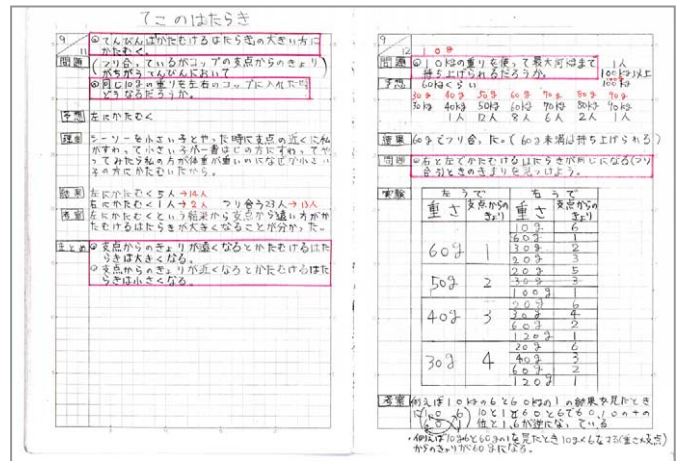 てこのはたらき
9/11
◎てんびんはかたむけるはたらきの大きい方に
かたむく。
問題
(つり合っているがコップの支点からのきょり
がちがうてんびんにおいて)
◎同じ10gの重りを左右のコップに入れたら
どうなるだろうか。
予想 左にかたむく
理由 シーソーを小さい子とやった時に支点の近くに私
がすわって小さい子が一番はじの方にすわって
ってみたら私の方が体重が重いのになぜか小さい
子の方にかたむいたから。
結果 左にかたむく5人→14人
右にかたむく1人→2人 つり合う23人→13人
考察 左にかたむくという結果から支点から遠い方がか
たむけるはたらきが大きくなることが分かった。
まとめ ◎支点からのきょりが遠くなるとかたむけるはた
らきは大きくなる。
◎支点からのきょりが近くなるとかたむけるはた
らきは小さくなる。
9/12
10g
問題 ◎10kgの重りを使って最大何kgまで
持ち上げられるだろうか。
1人
100kg以上
予想 60kgくらい
100kg
30g 40g 50g 60g 70g 80g 90g
30kg 40kg 50kg 60kg 70kg 80kg 90kg
1人 12人 8人 6人 2人 1人
結果 60gでつり合った。(60g未満は持ち上げられる)
問題 ◎右と左でかたむけるはたらきが同じになる(つり
合う)ときのきまりを見つけよう。
実験
左うで 右うで
重さ 支点からのきょり 重さ 支点からのきょり
60g 1
10g 6
60g 1
30g 2
20g 3
50g 2
20g 5
100g 1
40g 3
20g 6
30g 4
60g 2
120g 1
30g 4
20g 6
40g 3
60g 2
120g 1
考察 例えば10kgの6と60kgの1の結果を見たとき